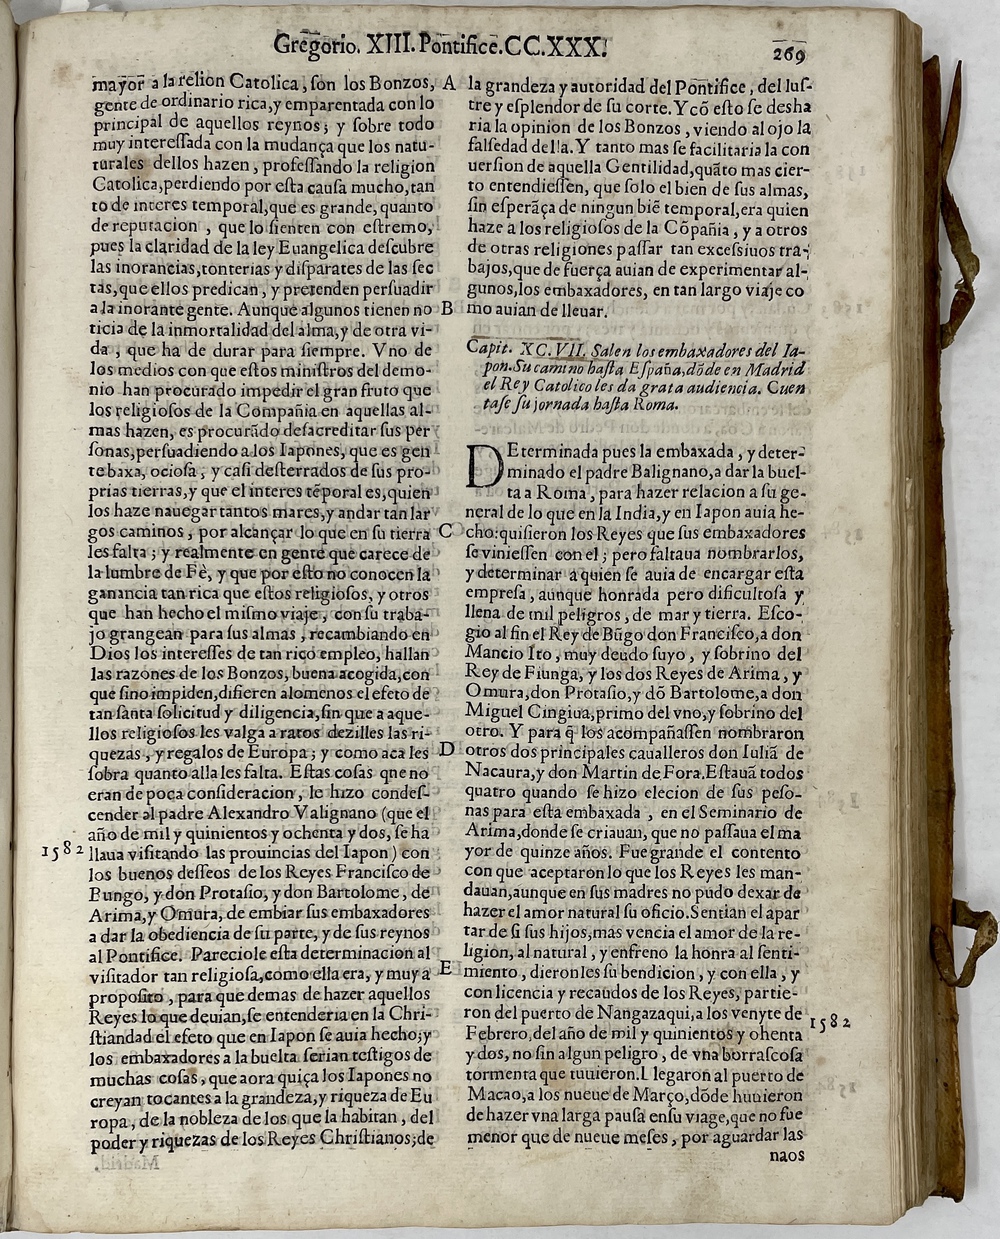 Gregorio. XIII. Pontifice.CC.XXX.
269
mayor a la relion Catolica, son los Bonzos,
gente de ordinario rica, y emparentada con lo
principal de aquellos reynos; y sobre todo
muy interessada con la mudança que los natu-
turales dellos hazen, professando la religion
Catolica, perdiendo por esta causa mucho, tan
to de interes temporal, que es grande, quanto
de reputacion, que lo sienten con estremo,
pues la claridad de la ley Euangelica descubre
las inorancias, tonterias y disparates de las sec
tas, que ellos predican, y pretenden persuadir
a la inorante gente. Aunque algunos tienen no
ticia de la inmortalidad del alma, y de otra vi-
da, que ha de durar para siempre. Vno de
los medios con que estos ministros del demo-
nio han procurado impedir el gran fruto que
los religiosos de la Compañia en aquellas al-
mas hazen, es procurãdo desacreditar sus per
sonas, persuadiendo a los Iapones, que es gen
te baxa, ociosa, y casi desterrados de sus pro-
prias tierras, y que el interes tẽporal es, quien
los haze nauegar tantos mares, y andar tan lar
gos caminos, por alcançar lo que en su tierra
les falta; y realmente en gente que carece de
la lumbre de Fè, y que por esto no conocen la
ganancia tan rica que estos religiosos, y otros
que han hecho el mismo viaje, con su traba-
jo grangean para sus almas, recambiando en
Dios los interesses de tan rico empleo, hallan
las razones de los Bonzos, buena acogida, con
que sino impiden, difieren alomenos el efeto de
tan santa solicitud y diligencia, sin que a aque-
llos religiosos les valga a ratos dezilles las ri-
quezas, y regalos de Europa; y como aca les
sobra quanto alla les falta. Estas cosas qne no
eran de poca consideracion, le hizo condes-
cender al padre Alexandro Valignano (que el
año de mil y quinientos y ochenta y dos, se ha
1582 llaua visitando las prouincias del Iapon) con
los buenos desseos de los Reyes Francisco de
Bungo, y don Protasio, y don Bartolome, de
Arima, y Omura, de embiar sus embaxadores
a dar la obediencia de su parte, y de sus reynos
al Pontifice. Pareciole esta determinacion al
visitador tan religiosa, como ella era, y muy a
proposito, para que demas de hazer aquellos
Reyes lo que deuian, se entenderia en la Chri-
stiandad el efeto que en Iapon se auia hecho; y
los embaxadores a la buelta serian testigos de
muchas cosas, que aora quiça los Iapones no
creyan tocantes a la grandeza, y riqueza de Eu
ropa, de la nobleza de los que la habitan, del
poder y riquezas de los Reyes Christianos; de
A
B
C
D
E
la grandeza y autoridad del Pontifice, del lus-
tre y esplendor de su corte. Y cõ esto se desha
ria la opinion de los Bonzos, viendo al ojo la
falsedad della. Y tanto mas se facilitaria la con
uersion de aquella Gentilidad, quãto mas cier-
to entendiessen, que solo el bien de sus almas,
sin esperãça de ningun biẽ temporal, era quien
haze a los religiosos de la Cõpañia, y a otros
de otras religiones passar tan excessiuos tra-
bajos, que de fuerça auian de experimentar al-
gunos, los embaxadores, en tan largo viaje co
mo auian de lleuar.
Capit. XC.VII. Salen los embaxadores del Ia-
pon. Su camino hasta España, dõde en Madrid
el Rey Catolico les da grata audiencia. Cuen
tase su jornada hasta Roma.
DEterminada pues la embaxada, y deter-
minado el padre Balignano, a dar la buel-
ta a Roma, para hazer relacion a su ge-
neral de lo que en la India, y en Iapon auia he-
cho: quisieron los Reyes que sus embaxadores
se viniessen con el; pero faltaua nombrarlos,
y determinar a quien se auia de encargar esta
empresa, aunque honrada pero dificultosa y
llena de mil peligros, de mar y tierra. Esco-
gio al fin el Rey de Bũgo don Francisco, a don
Mancio Ito, muy deudo suyo, y sobrino del
Rey de Fiunga, y los dos Reyes de Arima, y
Omura, don Protasio, y dõ Bartolome, a don
Miguel Cingiua, primo del vno, y sobrino del
otro. Y para q̃ los acompañassen nombraron
otros dos principales caualleros don Iuliã de
Nacaura, y don Martin de Fora. Estauã todos
quatro quando se hizo elecion de sus peso-
nas para esta embaxada, en el Seminario de
Arima, donde se criauan, que no passaua el ma
yor de quinze años. Fue grande el contento
con que aceptaron lo que los Reyes les man-
dauan, aunque en sus madres no pudo dexar de
hazer el amor natural su oficio. Sentian el apar
tar de si sus hijos, mas vencia el amor de la re-
ligion, al natural, y enfreno la honra al senti-
miento, dieronles su bendicion, y con ella, y
con licencia y recaudos de los Reyes, partie-
ron del puerto de Nangazaqui, a los venyte de
1582
Febrero, del año de mil y quinientos y ohenta
y dos, no sin algun peligro, de vna borrascosa
tormenta que tuuieron. Llegaron al puerto de
Macao, a los nueue de Março, dõde huuieron
de hazer vna larga pausa en su viage, que no fue
menor que de nueue meses, por aguardar las
naos